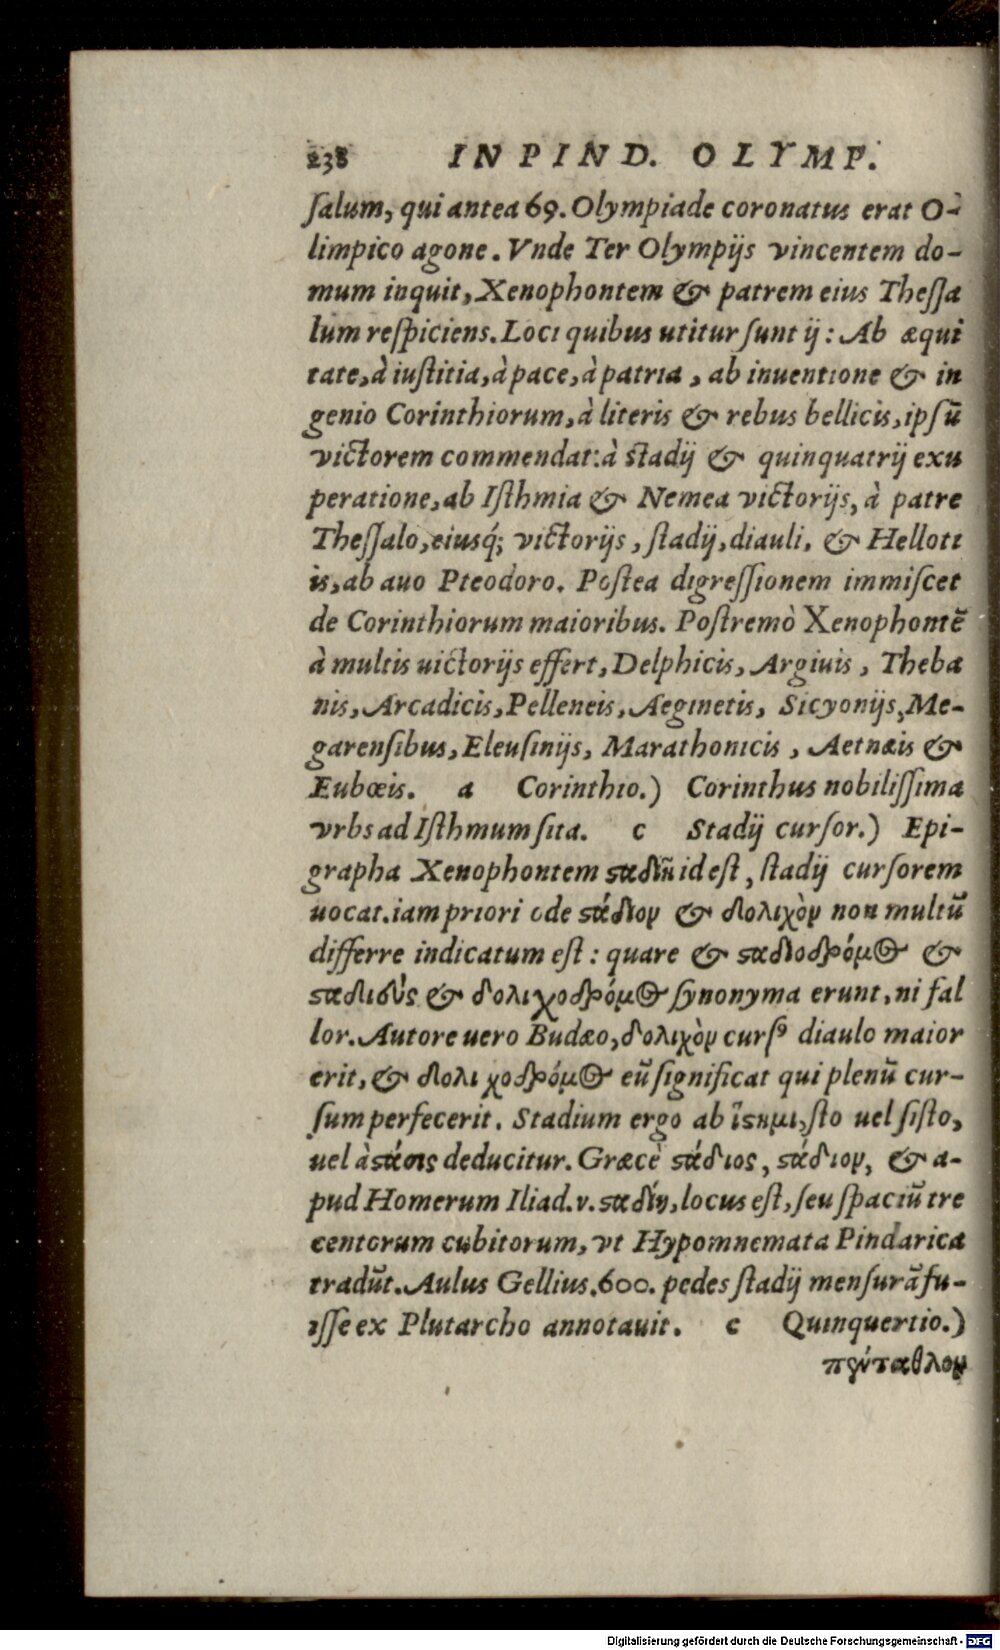 238 IN PIND. OLYMP.
ſalum, qui antea 69. Olympiade coronatus erat O-
limpico agone. Vnde Ter Olympijs vincentem do-
mum inquit, Xenophontem & patrem eius Theſſa
lum reſpiciens. Loci quibus utitur ſunt ij: Ab æqui
tate, à iuſtitia, à pace, à patria, ab inuentione & in
genio Corinthiorum, à literis & rebus bellicis, ipſũ
victorem commendat: à ſtadij & quinquatrij exu
peratione, ab Iſthmia & Nemea victorijs, à patre
Theſſalo, eiusq́; victorijs, ſtadij, diauli, & Helloti
is, ab auo Pteodoro. Poſtea digreſſionem immiſcet
de Corinthiorum maioribus. Poſtremò Xenophontẽ
à multis uictorijs effert, Delphicis, Argiuis, Theba
nis, Arcadicis, Pelleneis, Aeginetis, Sicyonijs, Me-
garenſibus, Eleuſinijs, Marathonicis, Aetnæis &
Eubœis. a Corinthio.) Corinthus nobiliſſima
vrbs ad Iſthmum ſita. c Stadij curſor.) Epi-
grapha Xenophontem id eſt, ſtadij curſorem
uocat. iam priori ode ϛάδιον & δολιχὸν non multũ
differre indicatum eſt: quare & ϛαδιοδρόμος &
ϛαδιεὺς & δολιχοδρόμος ſynonyma erunt, ni fal
lor. Autore uero Budæo, δολιχὸν curſꝰ diaulo maior
erit, & δολιχοδρόμος eũ ſignificat qui plenũ cur-
ſum perfecerit. Stadium ergo ab ἵϛημι, ſto uel ſiſto,
uel à ϛάσις deducitur. Græcè ϛάδιος, ϛάδιον, & a-
pud Homerum Iliad. v. ϛαδίη, locus eſt, ſeu ſpaciũ tre
centorum cubitorum, vt Hypomnemata Pindarica
tradũt. Aulus Gellius. 600. pedes ſtadij menſurã fu-
iſſe ex Plutarcho annotauit. c Quinquertio.)
πένταθλον
Digitalisierung gefördert durch die Deutsche Forschungsgemeinschaft - DFG